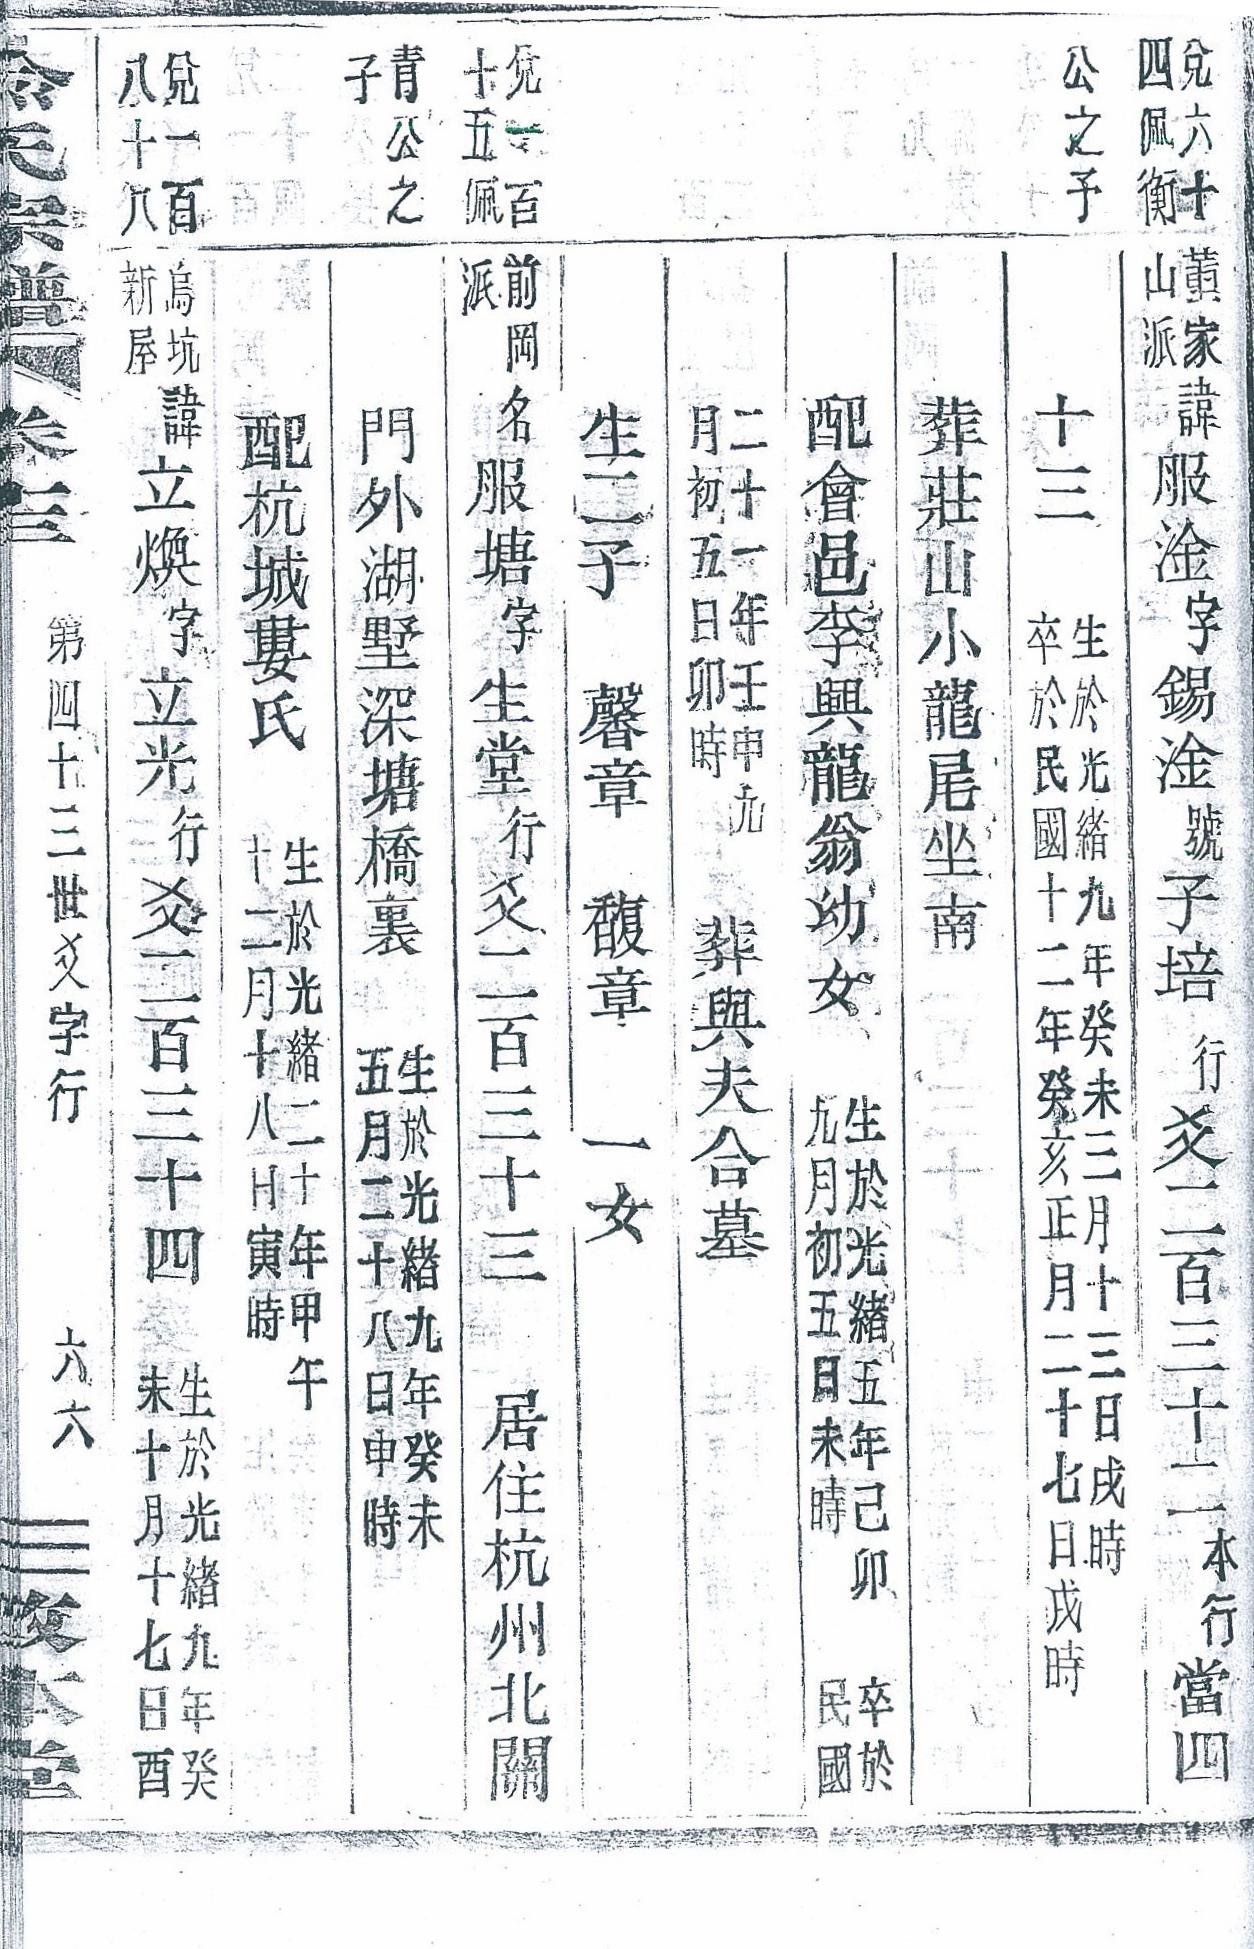 兌六十
四佩衡
公之子
董家
山派
諱服淦字錫淦號子培行爻二百三十二本行當四
十三
生於光緒九年癸未三月十三日戌時
卒於民國十二年癸亥正月二十七日戌時
葬莊山小龍尾坐南
配會邑李興龍翁幼女
生於光緒五年己卯
九月初五日未時
卒於
民國
二十一年壬申九
月初五日卯時
葬與夫合墓
生二子 馨章 馥章 一女
兌一百
十五佩
青公之
子
前岡
派
名服塘字生堂行爻二百三十三 居住杭州北關
門外湖墅深塘橋裏
生於光緒九年癸未
五月二十八日申時
配杭城婁氏
生於光緒二十年甲午
十二月十八日寅時
兌一百
八十八
烏坑
新屋
諱立煥字立光行爻二百三十四
生於光緒九年癸
未十月十七日酉
氏宗譜 卷三 第四十三世爻字行 六六 敦本堂